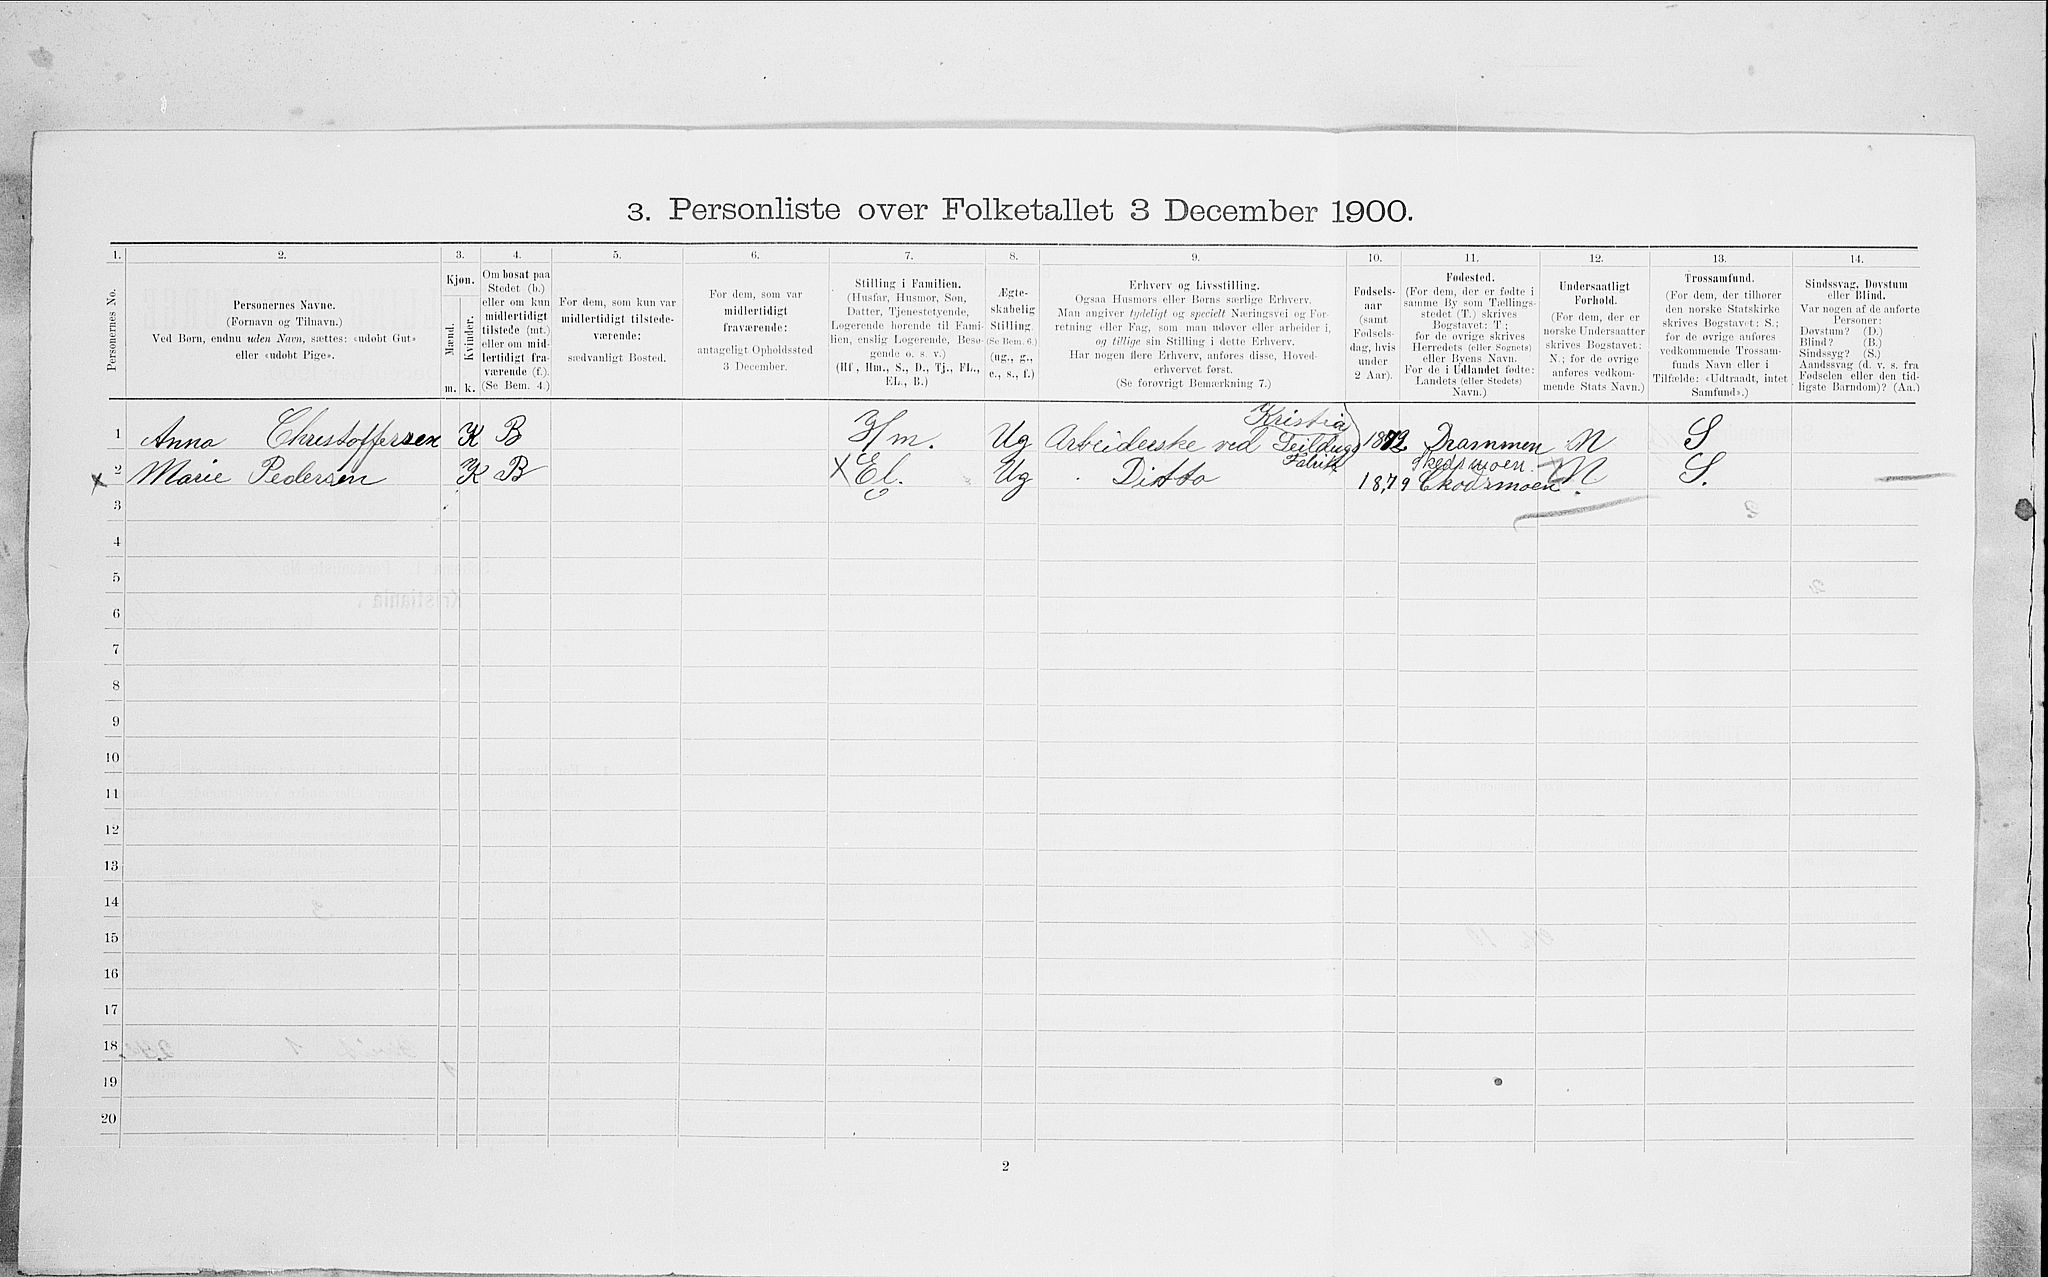 3. Personliste over Folketallet 3 December 1900.
1. 2. 3. 4. 5. 6. 7. 8. 9. 10. 11. 12. 13. 14.
Personernes No.
Personernes Navne.
(Fornavn og Tilnavn.)
Ved Børn, endnu uden Navn, sættes: «udøbt Gut»
eller «udøbt Pige».
Kjøn.
Mænd.
Kvinder.
m. k.
Om bosat paa
Stedet (b.)
eller om kun
midlertidigt
tilstede (mt.)
eller om mid-
lertidigt fra-
værende (f.).
(Se Bem. 4.)
For dem, som kun var
midlertidigt tilstede-
værende:
sædvanligt Bosted.
For dem, som var
midlertidigt
fraværende:
antageligt Opholdssted
3 December.
Stilling i Familien.
(Husfar, Husmor, Søn,
Datter, Tjenestetyende,
Logerende hørende til Fami-
lien, enslig Logerende, Besø-
gende o. s. v.)
(Hf, Hm., S., D., Tj., FL.,
EL., B.)
Ægte-
skabelig
Stilling.
(Se Bem. 6.)
(ug., g.,
e., s., f.)
Erhverv og Livsstilling.
Ogsaa Husmors eller Børns særlige Erhverv.
Man angiver tydeligt og specielt Næringsvei og For-
retning eller Fag, som man udøver eller arbeider i,
og tillige sin Stilling i dette Erhverv.
Har nogen flere Erhverv, anføres disse, Hoved-
erhvervet først.
(Se forøvrigt Bemerkning 7.)
Fødsels-
aar
(samt
Fødsels-
dag, hvis
under
2 Aar).
Fødested.
(For dem, der er fødte i
samme By som Tællings-
stedet (T.) skrives
Bogstavet: T;
for de øvrige skrives
Herredets (eller Sognets)
eller Byens Navn.
For de i Udlandet fødte:
Landets (eller Stedets)
Navn.)
Undersaatligt
Forhold.
(For dem, der er
norske Undersaatter
skrives Bogstavet:
N.; for de øvrige
anføres vedkom-
mende Stats Navn.)
Trossamfund.
(For dem, der tilhører
den norske Statskirke
skrives Bogstavet: S.;
for de øvrige anføres
vedkommende Trossam-
funds Navn eller i
Tilfælde: «Udtraadt, intet
Samfund».)
Sindssvag, Døvstum
eller Blind.
Var nogen af de anførte
Personer:
Døvstum? (D.)
Blind? (B.)
Sindssyg? (S.)
Aandssvag (d. v. s. fra
Fødselen eller den tid-
ligste Barndom)? (Aa.)
Kristia
1 Anna Christoffersen K B Hm. Ug Arbeiderske ved Seildugs Fabrik 1873 Drammen N S
Skedsmoen
x 2 Marie Pedersen K B x El. Ug Ditto 1879 Skodsmoen N S.
3
4
5
6
7
8
9
10
11
12
13
14
15
16
17
18
19
20
2